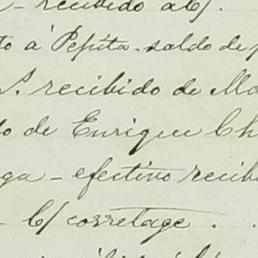 - recibido a b/.
to á Pepita - saldo de
S. recibido de Ma
o de Enrique Ch
ga - efectivo recib
- b/ corretage . .